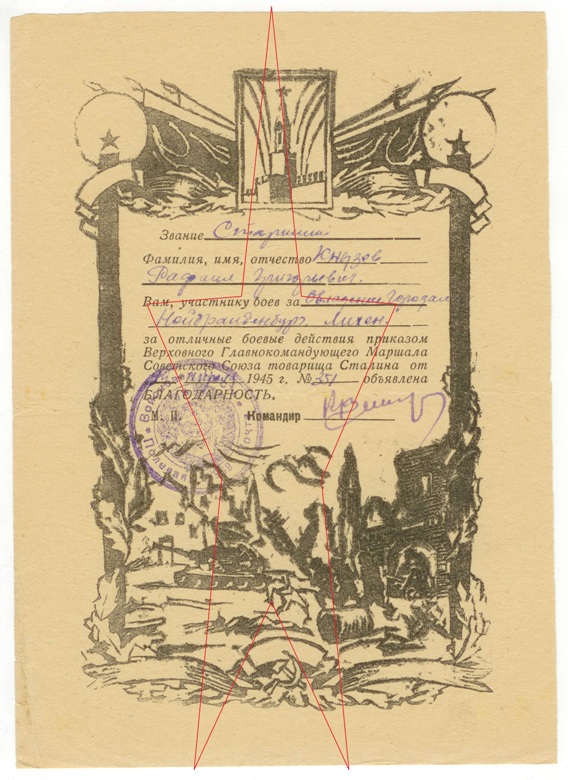 Звание Старшина
Фамилия, имя, отчество Князов
Рафаил Григорьевич.
Вам, участнику боев за Овладение Городам
Нойбранденбург Лихен
за отличные боевые действия приказом
Верховного Главнокомандующего Маршала
Советского Союза товарища Сталина от
Апреля 1945 г. № 351 объявлена
БЛАГОДАРНОСТЬ.
М. П. Командир
Полевая почта